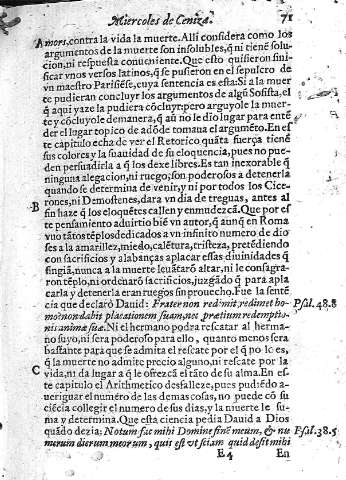 Miercoles de Ceniza. 71
Amors, contra la vida la muerte. Alli considera como los
argumentos de la muerte son insolubles, q̃ ni tiene solu-
cion, ni respuesta conueniente. Que esto quisieron sini-
ficar vnos versos latinos, q̃ se pusieron en el sepulcro de
vn maestro Parisiẽse, cuya sentencia es esta: Si a la muer
te pudieran concluyr los argumentos de algũ Sofista, el
q̃ aqui yaze la pudiera cõcluyr: pero arguyole la muer-
te y cõcluyole demanera, q̃ aũ no le dio lugar para entẽ
der el lugar topico de adõde tomaua el argumẽto. En es
te capitulo echa de ver el Retorico quãta fuerça tienẽ
sus colores y la suauidad de su eloquencia, pues no pue-
den persuadirla a q̃ los dexe libres. Es tan inexorable q̃
ninguna alegacion, ni ruego, son poderosos a detenerla
quando se determina de venir, y ni por todos los Cice-
B rones, ni Demostenes, dara vn dia de treguas, antes al
fin haze q̃ los eloquẽtes callen y enmudezcã. Que por es
te pensamiento aduirtio biẽ vn autor, q̃ aunq̃ en Roma
vuo tãtos tẽplos dedicados a vn infinito numero de dio
ses a la amarillez, miedo, calẽtura, tristeza, pretẽdiendo
con sacrificios y alabanças aplacar essas diuinidades q̃
fingiã, nunca a la muerte leuãtarõ altar, ni le consagra-
ron tẽplo, ni ordenarõ sacrificios, juzgãdo q̃ para apla
carla y detenerla eran ruegos sin prouecho. Fue la sentẽ
cia que declarò Dauid: Frater non redimit, redimet ho- Psal. 48.8
mo: non dabit placationem suam, nec prætium redemptio-
nis animæ suæ. Ni el hermano podra rescatar al herma-
no suyo, ni sera poderoso para ello, quanto menos sera
bastante para que se admita el rescate por el q̃ no lo es,
q̃ la muerte no admite precio alguno, ni rescate por la
C vida, ni da lugar a q̃ le ofrezcã el tãto de su alma. En es-
te capitulo el Arithmetico desfalleze, pues pudiẽdo a-
ueriguar el numero de las demas cosas, no puede cõ su
ciẽcia collegir el numero de sus dias, y la muerte le su-
ma y determina. Que esta ciencia pedia Dauid a Dios
quãdo dezia: Notum fac mihi Domine finẽ meum, & nu Psal. 38.5
merum dierum meorum, quis est vt sciam quid desit mihi
E4 En